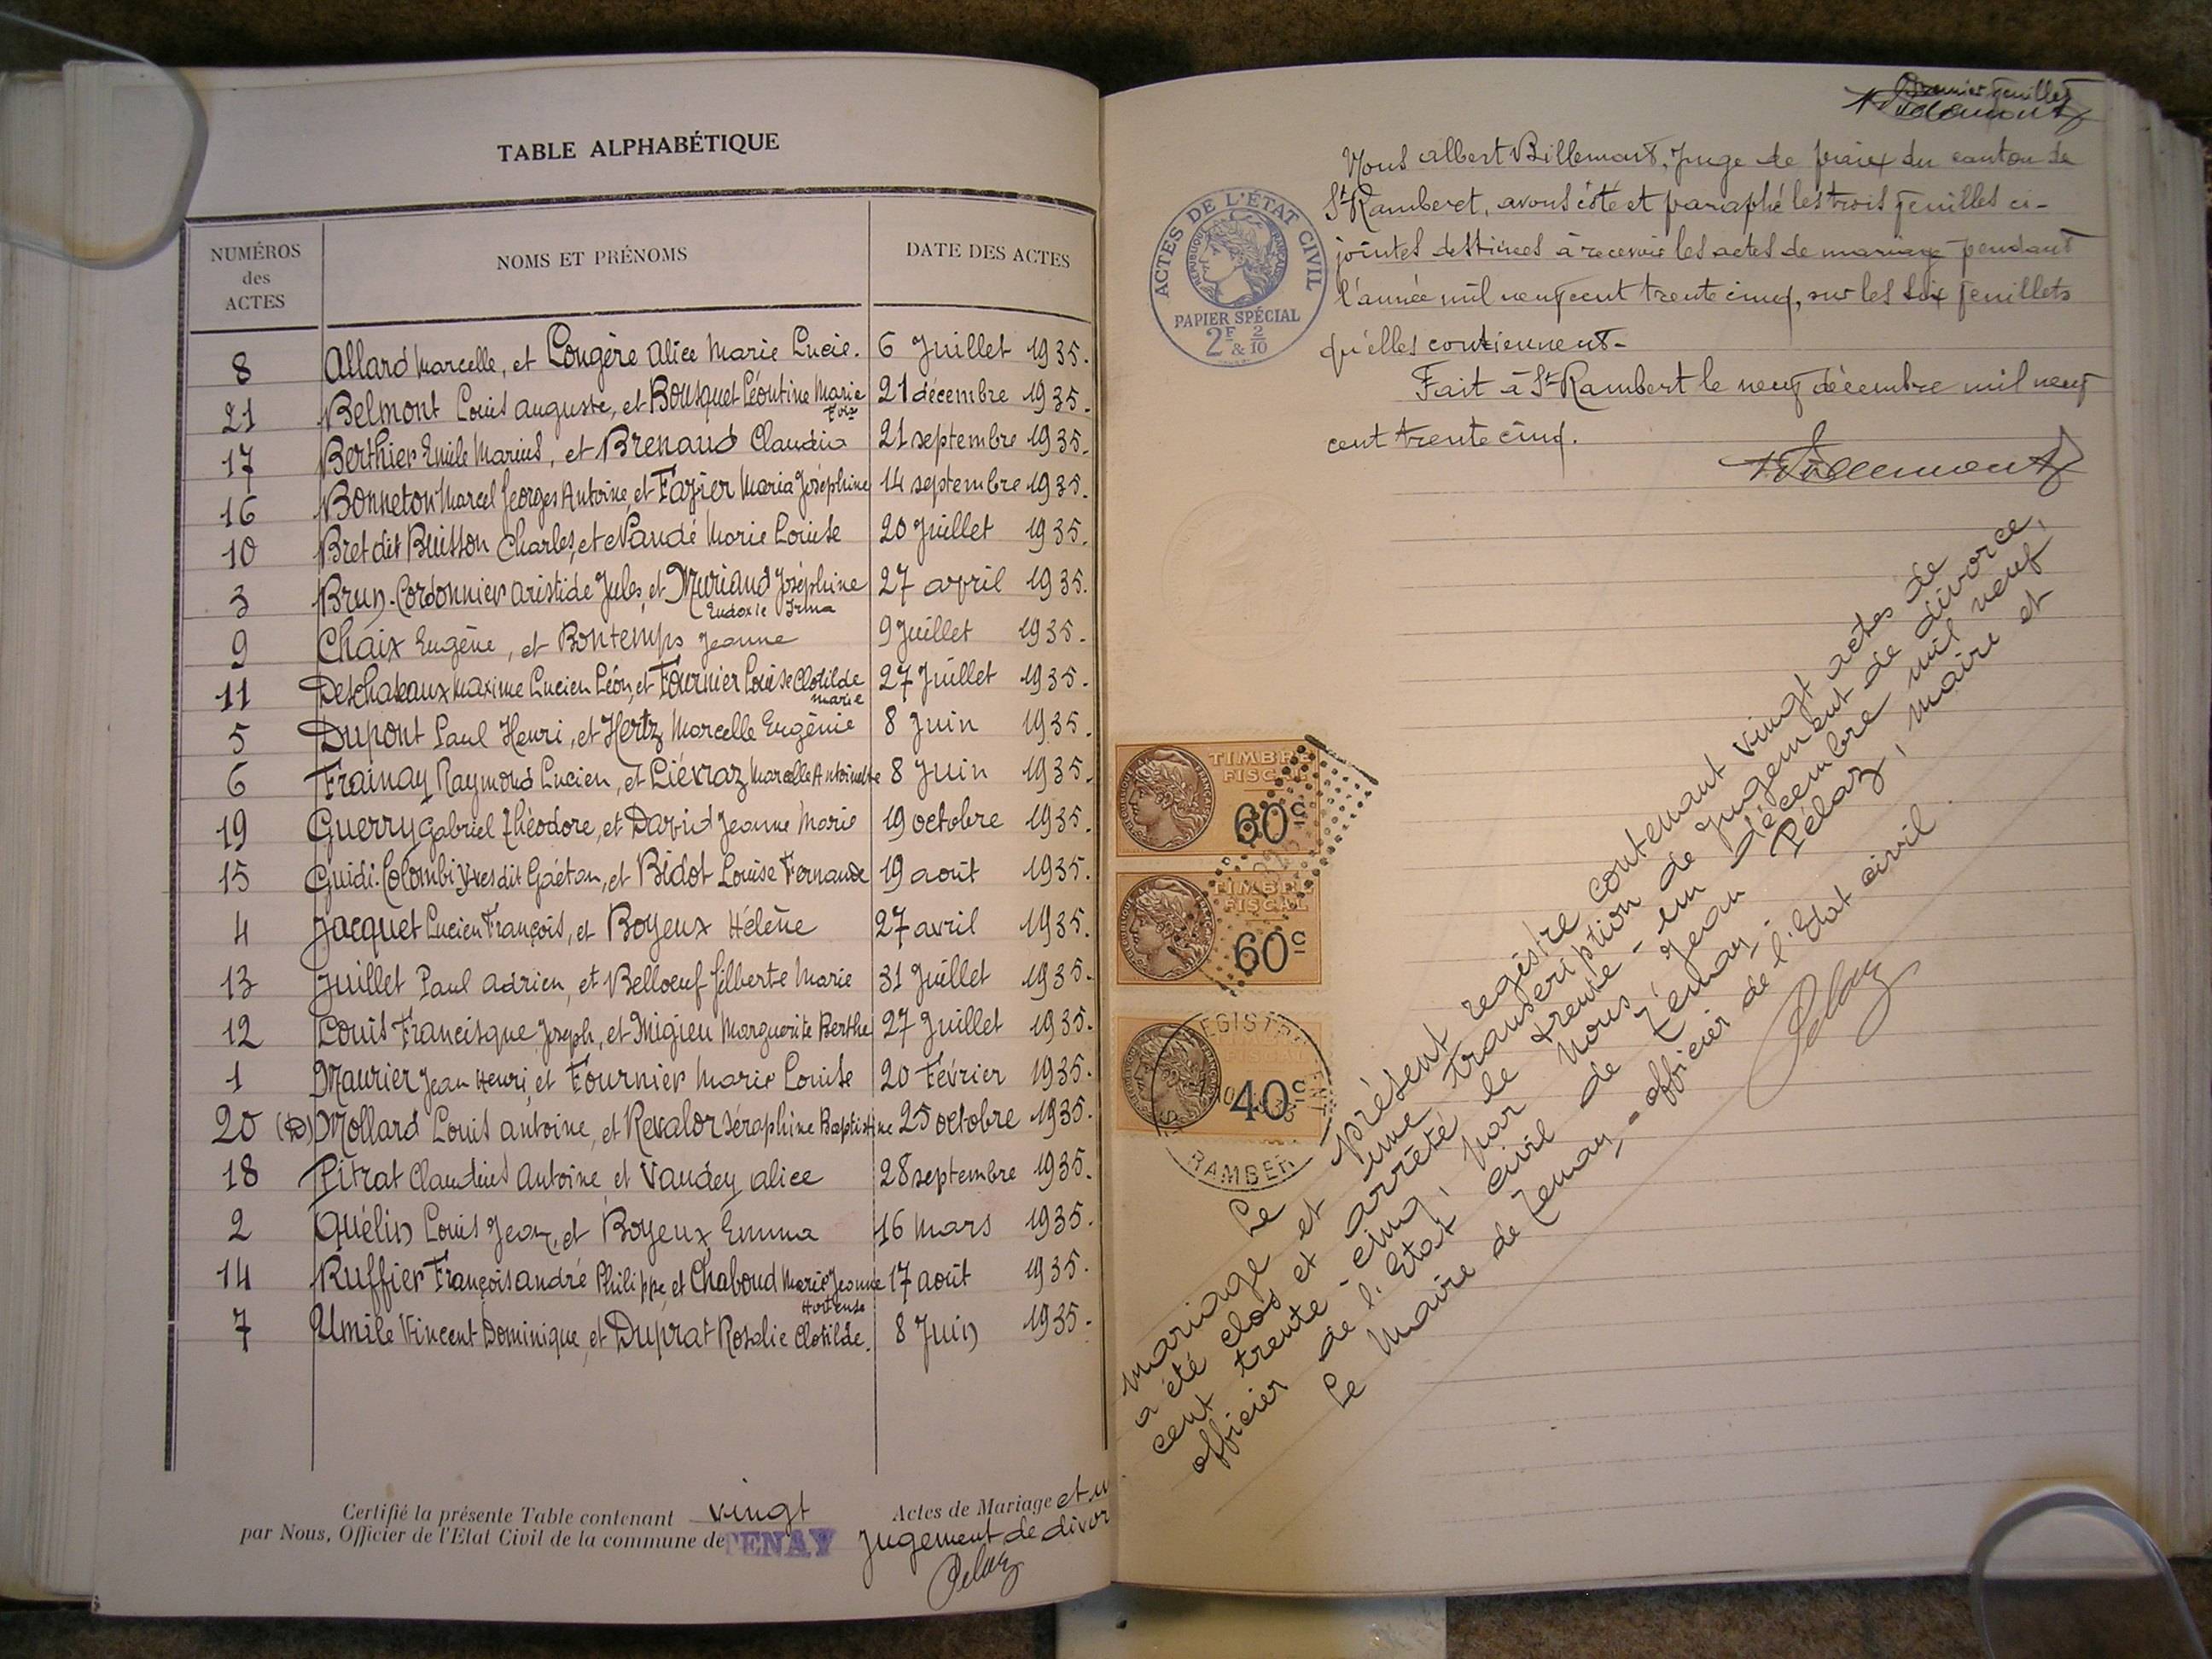 TABLE ALPHABÉTIQUE
NUMÉROS des ACTES
NOMS ET PRÉNOMS
DATE DES ACTES
8 Allard Marcelle, et Longère Alice Marie Lucie. 6 Juillet 1935.
21 Belmont Louis Auguste, et Bousquet Léontine Marie 21 décembre 1935.
17 Berthier Emile Marius, et Brenaud Claudia 21 septembre 1935.
16 Bonneton Marcel Georges Antoine, et Fazier Maria Joséphine 14 septembre 1935.
10 Bret dit Buisson Charles, et Vaudé Marie Louise 20 Juillet 1935.
3 Brun-Cordonnier Aristide Jules, et Muriand Joséphine 27 avril 1935.
Eudoxie Irma
9 Chaix Eugène, et Bontemps Jeanne 9 Juillet 1935.
11 Deschateaux Maxime Lucien Léon, et Fournier Louise Clotilde 27 Juillet 1935.
Marie
5 Dupont Paul Henri, et Hertz Marcelle Eugénie 8 Juin 1935.
6 Frainay Raymond Lucien, et Liévraz Marcelle Antoinette 8 Juin 1935.
19 Guerry Gabriel Théodore, et David Jeanne Marie 19 octobre 1935.
15 Guidi-Colombi Yves dit Gaétan, et Bidot Louise Fernande 19 août 1935.
4 Jacquet Lucien François, et Boyeux Hélène 27 avril 1935.
13 Juillet Paul Adrien, et Belloeuf Gilberte Marie 31 Juillet 1935.
12 Louis Francisque Joseph, et Migieu Marguerite Berthe 27 Juillet 1935.
1 Maurier Jean Henri, et Fournier Marie Louise 20 Février 1935.
20 (D) Mollard Louis Antoine, et Revalor Séraphine Baptistine 25 octobre 1935.
18 Pitrat Claudius Antoine, et Vaudey Alice 28 septembre 1935.
2 Quélin Louis Jean, et Boyeux Emma 16 Mars 1935.
14 Ruffier François André Philippe, et Chaboud Marie Jeanne 17 août 1935.
Hortense
7 Umile Vincent Dominique, et Duprat Rosalie Clotilde. 8 Juin 1935.
Certifié la présente Table contenant vingt Actes de Mariage et u
par Nous, Officier de l'Etat Civil de la commune de TENAY Jugement de divor
Pelaz
Premier feuillet
Billemont
Nous Albert Billemont, Juge de paix du canton de
St Rambert, avons coté et paraphé les trois feuilles ci-
jointes destinées à recevoir les actes de mariage pendant
l'année mil neuf cent trente cinq, sur les six feuillets
qu'elles contiennent-
Fait à St Rambert le neuf décembre mil neuf
cent trente cinq.
Billemont
ACTES DE L'ÉTAT CIVIL
RÉPUBLIQUE FRANÇAISE
PAPIER SPÉCIAL
2F & 2/10
TIMBRE
FISCAL
60c
TIMBRE
FISCAL
60c
40c
Le présent registre contenant vingt actes de
mariage et une transcription de jugement de divorce,
a été clos et arrêté le trente-un décembre mil neuf
cent trente-cinq, par nous, Jean Pélaz, maire et
officier de l'Etat civil de Tenay.
Le Maire de Tenay, officier de l'Etat civil
Pelaz